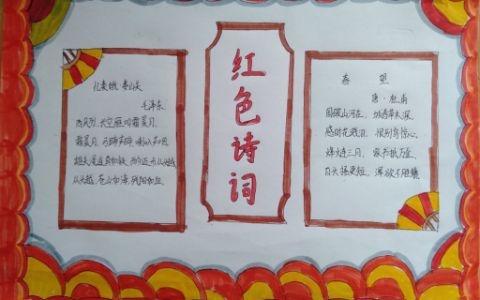 忆秦娥 娄山关
毛泽东
西风烈,长空雁叫霜晨月,
霜晨月,马蹄声碎,喇叭声咽
雄关漫道真如铁,而今迈步从头越
从头越,苍山如海,残阳如血.
红色诗词
春 望
唐·杜甫
国破山河在,城春草木深,
感时花溅泪,恨别鸟惊心,
烽火连三月,家书抵万金,
白头搔更短,浑欲不胜簪